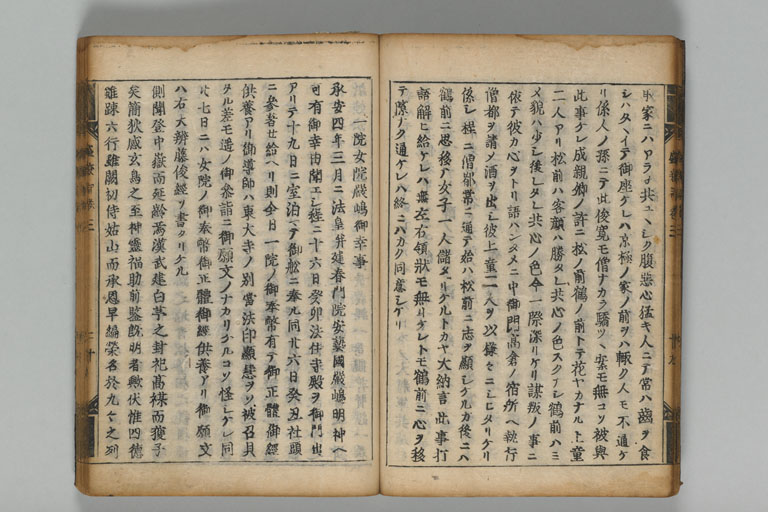 ル家ニハアラネ共ユヽシク腹悪心猛キ人ニテ常ハ歯ヲ食
シハタヽイテ御座ケレハ京極ノ家ノ前ヲハ輙ク人モ不通ケ
リ係人ノ孫ニテ此俊寛モ僧ナカラ驕ツヽ案モ無コソ被與
此事ケレ成親卿ノ許ニ松ノ前鶴ノ前トテ花ヤカナル上童
二人アリ松前ハ容顔ハ勝タレ共心ノ色スクナシ鶴前ハミ
メ貌ハ少シ後レタレ共心ノ色今一際深リケリ謀叛ノ事ニ
依テ彼カ心ヲトリ語ハンタメニ中御門高倉ノ宿所ヘ執行
僧都ヲ請メ酒ヲ出シ彼上童二人ヲ以様々ニシヒタリケリ
係シ程ニ僧都常ニ通テ始ハ松前ニ志ヲ顕シケルカ後ニハ
鶴前ニ思移テ女子一人儲タリケルトカヤ大納言此事打
語解ヒ給ケレハ無左右領状モ無リケレトモ鶴前ニ心ヲ移
テ際ノク通ケレハ終ニハカク同意シケリ
一院女院厳嶋御幸事
承安四年三月ニ法皇并建春門院安藝國厳嶋明神ヘ
可有御幸由聞エシ程ニ十六日癸卯法住寺殿ヲ御門出
アリテ十九日ニ室泊ニテ御舩ニ奉ル同廿六日癸丑社頭
ニ参着セ給ヘリ則今日一院ノ御奉幣有テ御正體御經
供養アリ御導師ハ東大寺ノ別當法印顕恵ヲソ被召具
タル差モ遥ノ御参詣ニ御願文ノナカリケルコソ怪シケレ同
廿七日ニハ女院ノ御奉幣御正體御經供養アリ御願文
ハ右大辨藤俊經ソ書タリケル
側聞登中嶽而延齢焉漢武建白茅之封祀髙禖而獲子
矣簡狄感玄鳥之至神靈福助前鑒既明者歟伏惟四徳
雖疎六行雖闕初侍姑山而承恩早編榮名於九々之列